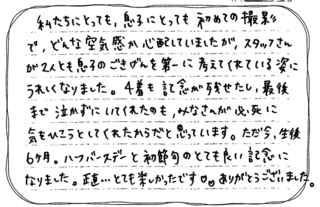 私たちにとっても、息子にとっても初めての撮影
で、どんな空気感か心配していましたが、スタッフさん
が2人とも息子のごきげんを第一に考えてくれている姿に
うれしくなりました。4着も記念が残せたし、最後
まで泣かずにいてくれたのも、みなさんが必死に
気をひこうとしてくれたからだと思っています。ただ今、生後
6ヶ月。ハーフバースデーと初節句のとても良い記念に
なりました。正直…とても楽しかったです♡。ありがとうございました。